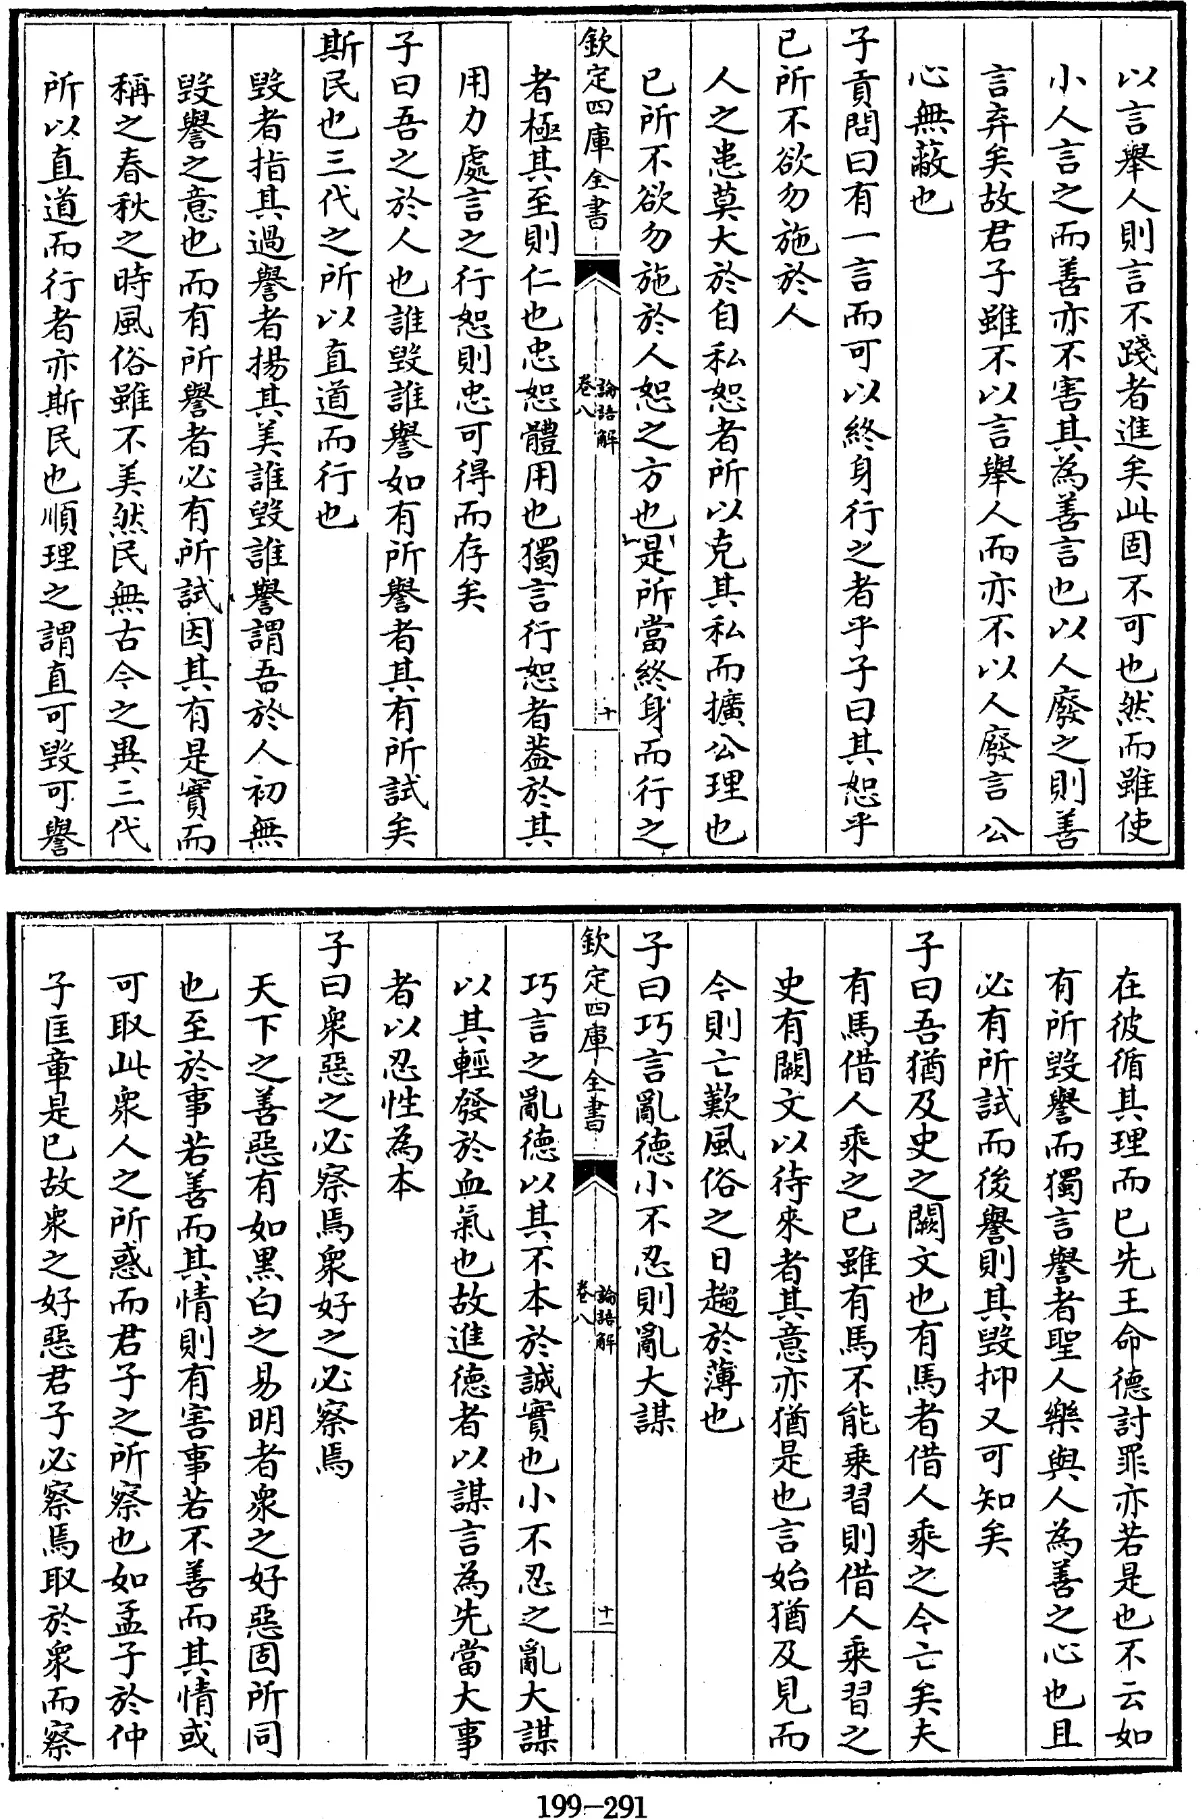 以言舉人則言不踐者進矣此固不可也然而雖使
小人言之而善亦不害其為善言也以人廢之則善
言弃矣故君子雖不以言舉人而亦不以人廢言公
心無蔽也
子貢問曰有一言而可以終身行之者乎子曰其恕乎
已所不欲勿施於人
人之患莫大於自私恕者所以克其私而擴公理也
已所不欲勿施於人恕之方也是所當終身而行之
欽定四庫全書
論語解
卷八
十
者極其至則仁也忠恕體用也獨言行恕者葢於其
用力處言之行恕則忠可得而存矣
子曰吾之於人也誰毀誰譽如有所譽者其有所試矣
斯民也三代之所以直道而行也
毀者指其過譽者揚其美誰毀誰譽謂吾於人初無
毀譽之意也而有所譽者必有所試因其有是實而
稱之春秋之時風俗雖不美然民無古今之異三代
所以直道而行者亦斯民也順理之謂直可毀可譽
在彼循其理而已先王命德討罪亦若是也不云如
有所毀譽而獨言譽者聖人樂與人為善之心也且
必有所試而後譽則其毀抑又可知矣
子曰吾猶及史之闕文也有馬者借人乘之今亡矣夫
有馬借人乘之已雖有馬不能乘習則借人乘習之
史有闕文以待來者其意亦猶是也言始猶及見而
今則亡歎風俗之日趨於薄也
子曰巧言亂德小不忍則亂大謀
欽定四庫全書
論語解
卷八
十一
巧言之亂德以其不本於誠實也小不忍之亂大謀
以其輕發於血氣也故進德者以謀言為先當大事
者以忍性為本
子曰衆惡之必察焉衆好之必察焉
天下之善惡有如黑白之易明者衆之好惡固所同
也至於事若善而其情則有害事若不善而其情或
可取此衆人之所惑而君子之所察也如孟子於仲
子匡章是已故衆之好惡君子必察焉取於衆而察
199-291